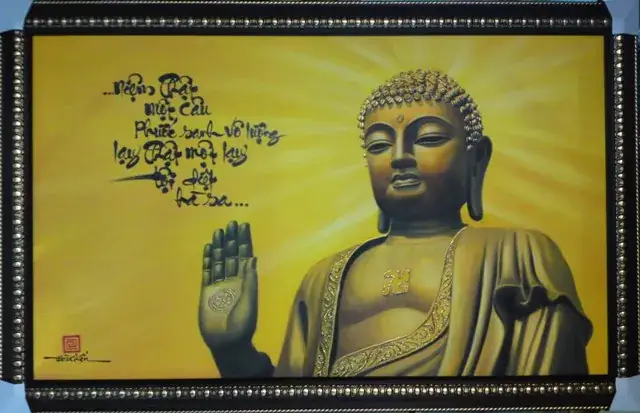 ...niệm Phật
một câu
Phước sanh vô lượng
lạy Phật một lạy
tội diệt
hà sa...